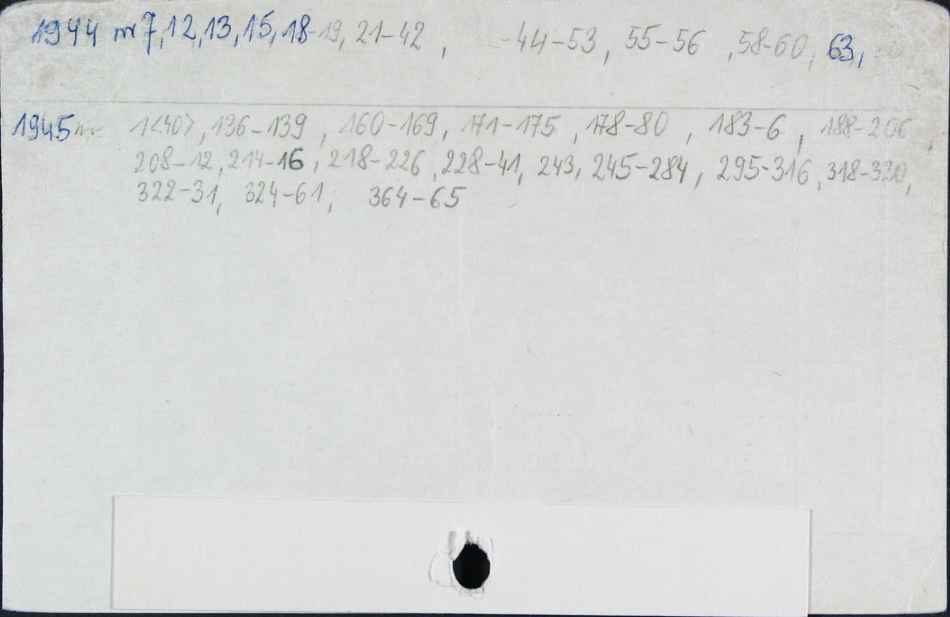 1944 nr 7, 12, 13, 15, 18-19, 21-42, -44-53, 55-56, 58-60, 63,
1945 nr 1<40>, 136-139, 160-169, 171-175, 178-80, 183-6, 188-206
208-12, 214-16, 218-226, 228-41, 243, 245-284, 295-316, 318-320,
322-31, 324-61, 364-65